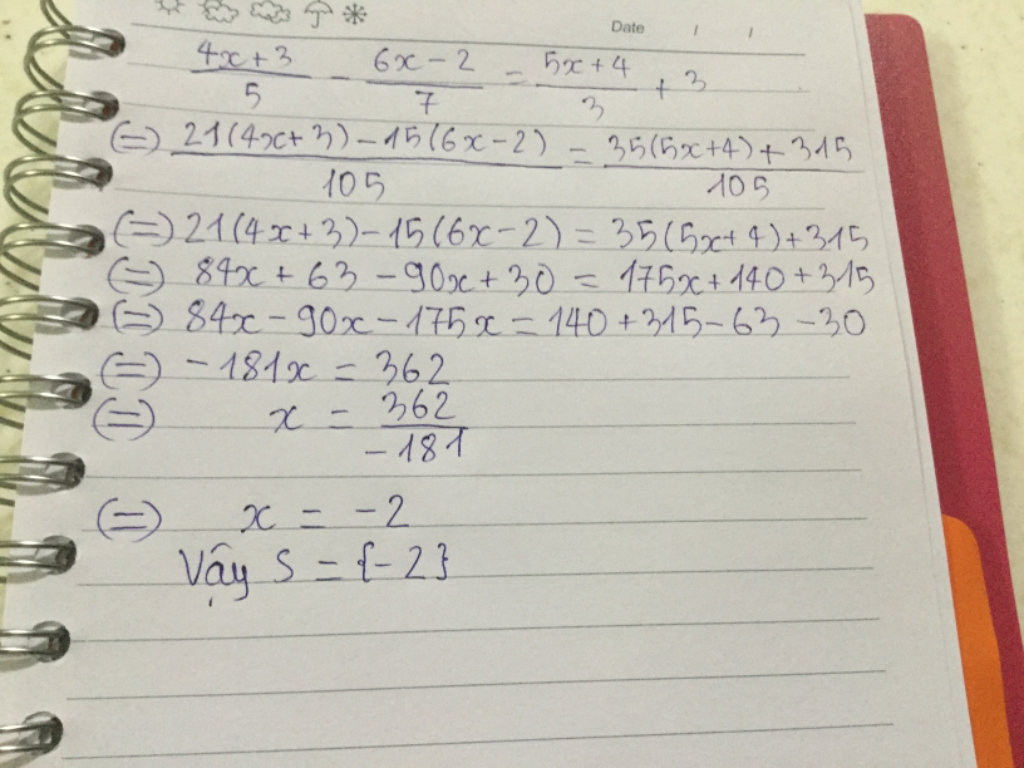 Date / /
4x+3/5 - 6x-2/7 = 5x+4/3 + 3
(=) 21(4x+3)-15(6x-2)/105 = 35(5x+4)+315/105
(=) 21(4x+3)-15(6x-2) = 35(5x+4)+315
(=) 84x + 63 - 90x + 30 = 175x + 140 + 315
(=) 84x - 90x - 175x = 140 + 315 - 63 - 30
(=) -181x = 362
(=) x = 362/-181
(=) x = -2
Vậy S = {-2}